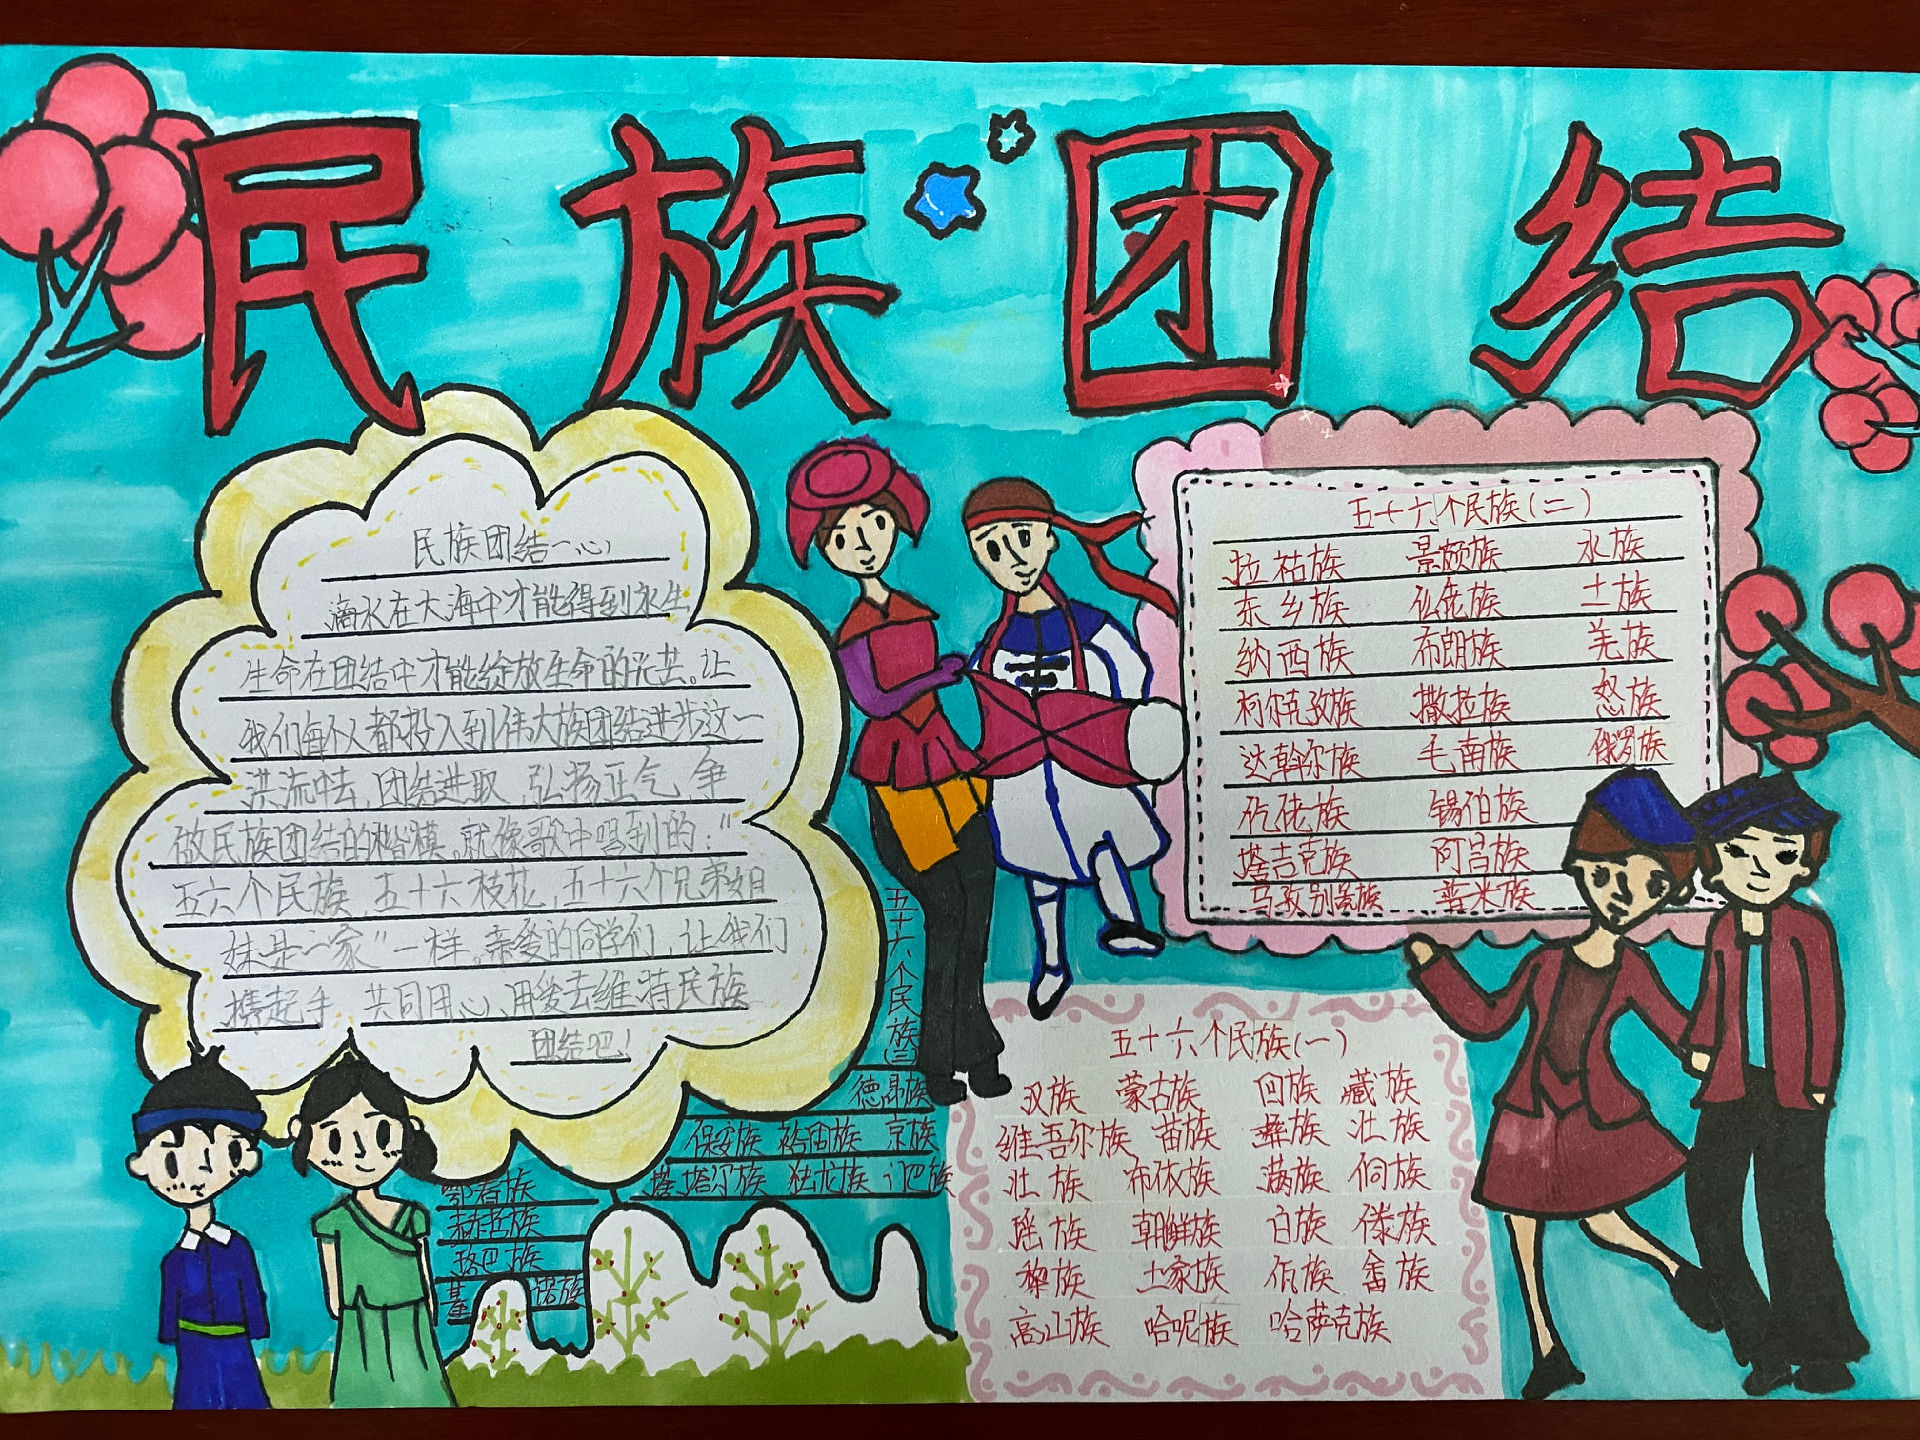 民族团结
民族团结一心
滴水在大海中才能得到永生
生命在团结中才能绽放生命的光芒。让
我们每个人都投入到伟大族团结进步这一
洪流中去，团结进取，弘扬正气，争
做民族团结的楷模。就像歌中唱到的："
五六个民族，五十六枝花，五十六个兄弟姐
妹是一家"一样。亲爱的同学们，让我们
携起手，共同用心、用爱去维持民族
团结吧！
五十六个民族(二)
拉祜族 景颇族 水族
东乡族 仫佬族 土族
纳西族 布朗族 羌族
柯尔克孜族 撒拉族 怒族
达斡尔族 毛南族 俄罗族
仡佬族 锡伯族
塔吉克族 阿昌族
普米族
五十六个民族(一)
汉族 蒙古族 回族 藏族
维吾尔族 苗族 彝族 壮族
壮族 布依族 满族 侗族
瑶族 朝鲜族 白族 傣族
黎族 土家族 佤族 畲族
高山族 哈呢族 哈萨克族
五十六个民族(三)
德昂族
保安族 裕固族 京族
塔塔尔族 独龙族
鄂春族
赫哲族
珞巴族
基 诺族